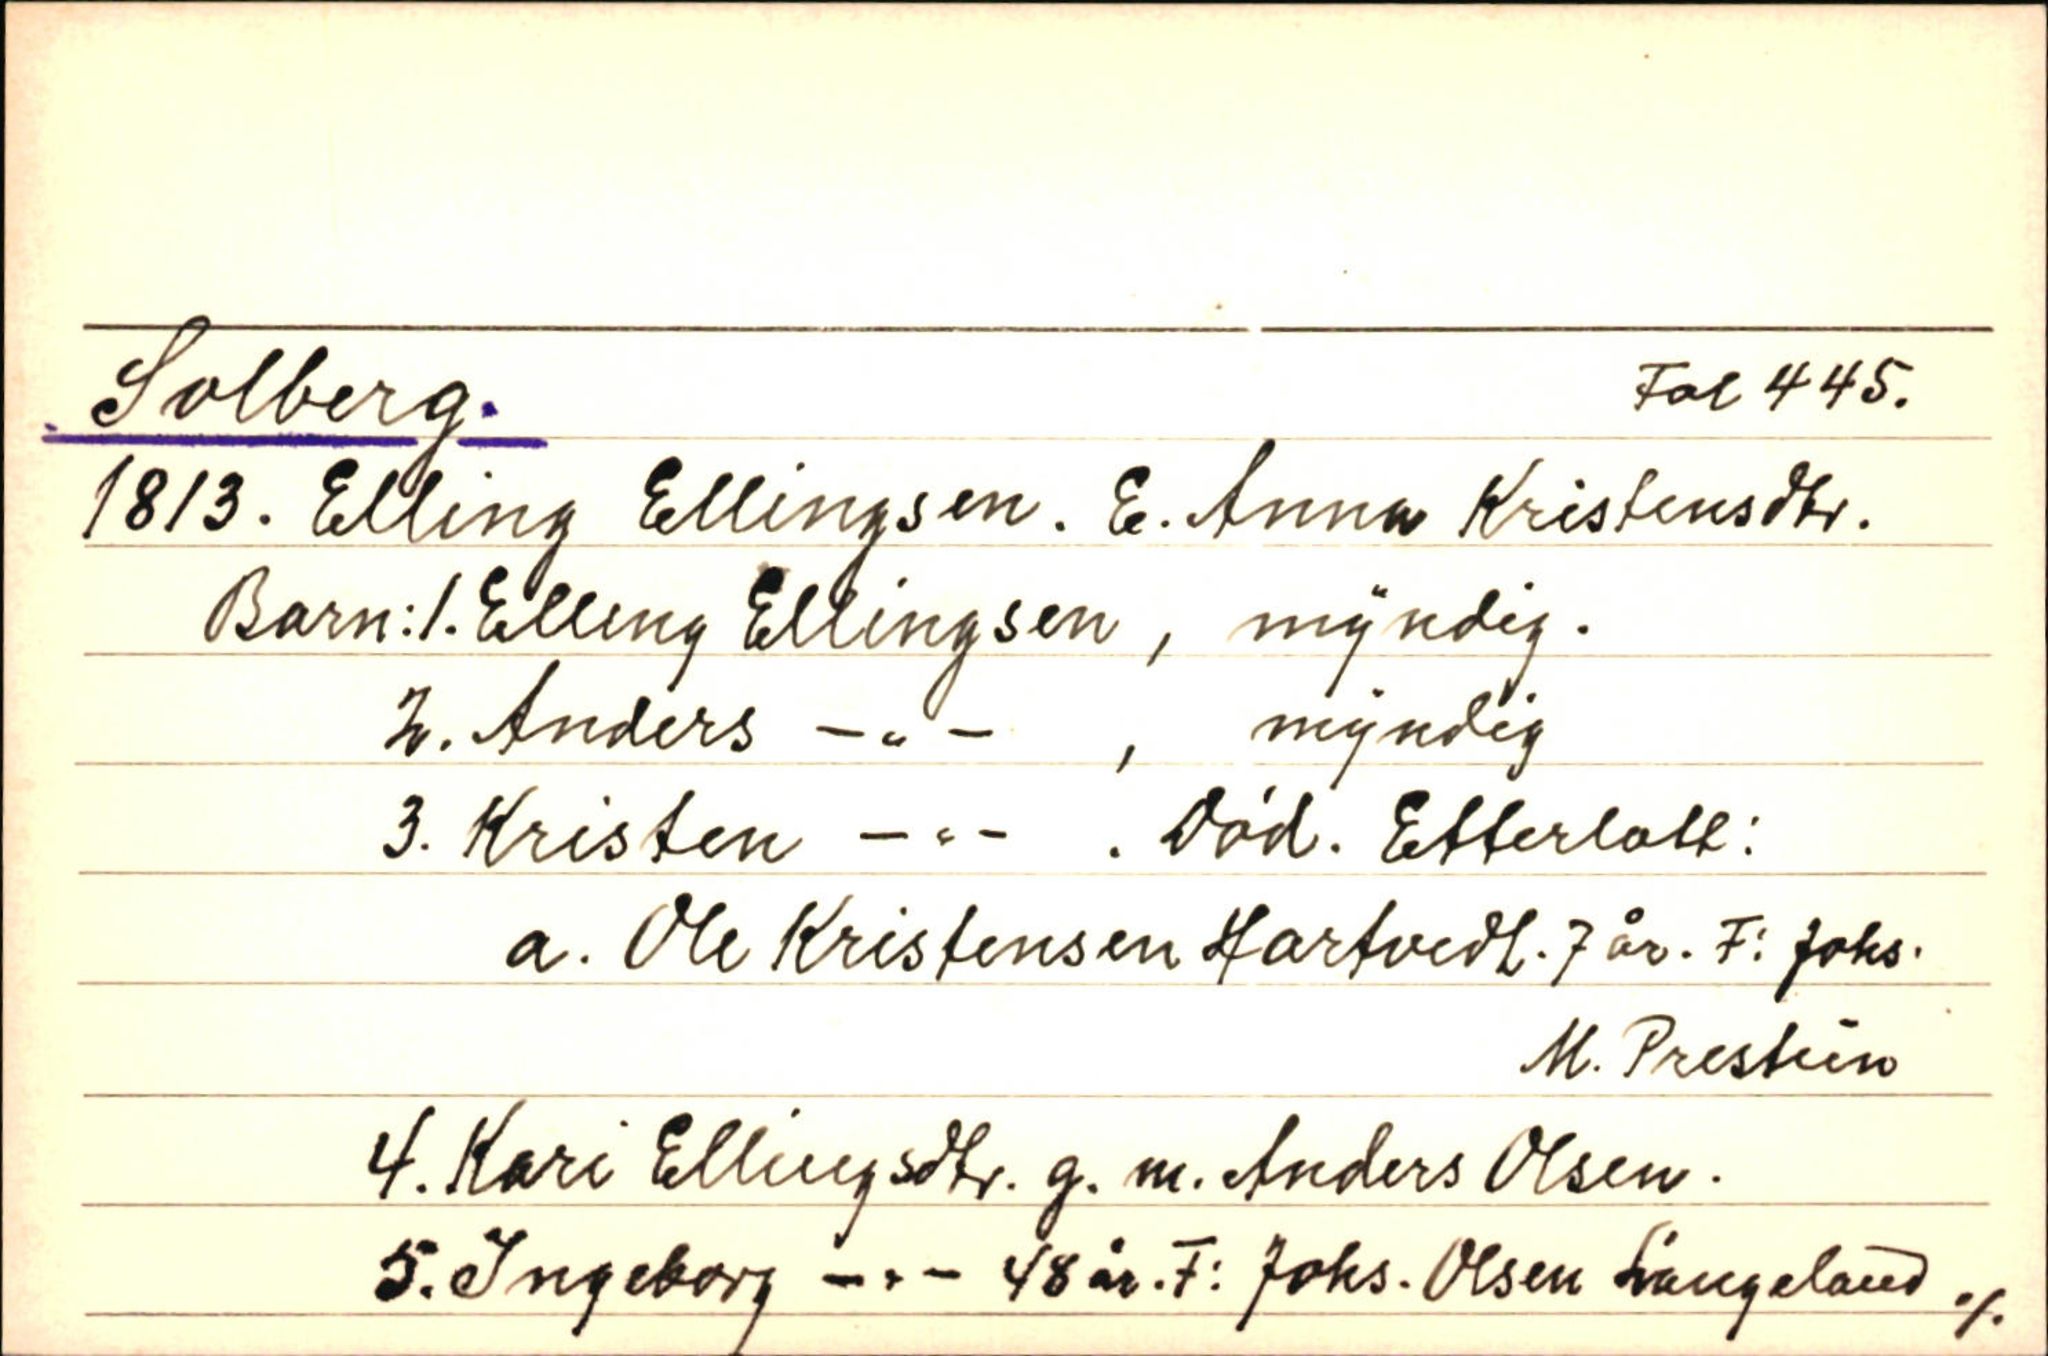 Solberg. Fol 445.
1813. Elling Ellingsen. E. Anna Kristensdtr.
Barn: 1. Elling Ellingsen, myndig.
2. Anders —"— , myndig
3. Kristen —"— . Död. Etterlatt:
a. Ole Kristensen Hartvedt. 7 år. F: Johs.
M. Prestun
4. Kari Ellingsdtr. g. m. Anders Olsen.
5. Ingeborg —"— 48 år. F: Johs. Olsen Langeland ./.